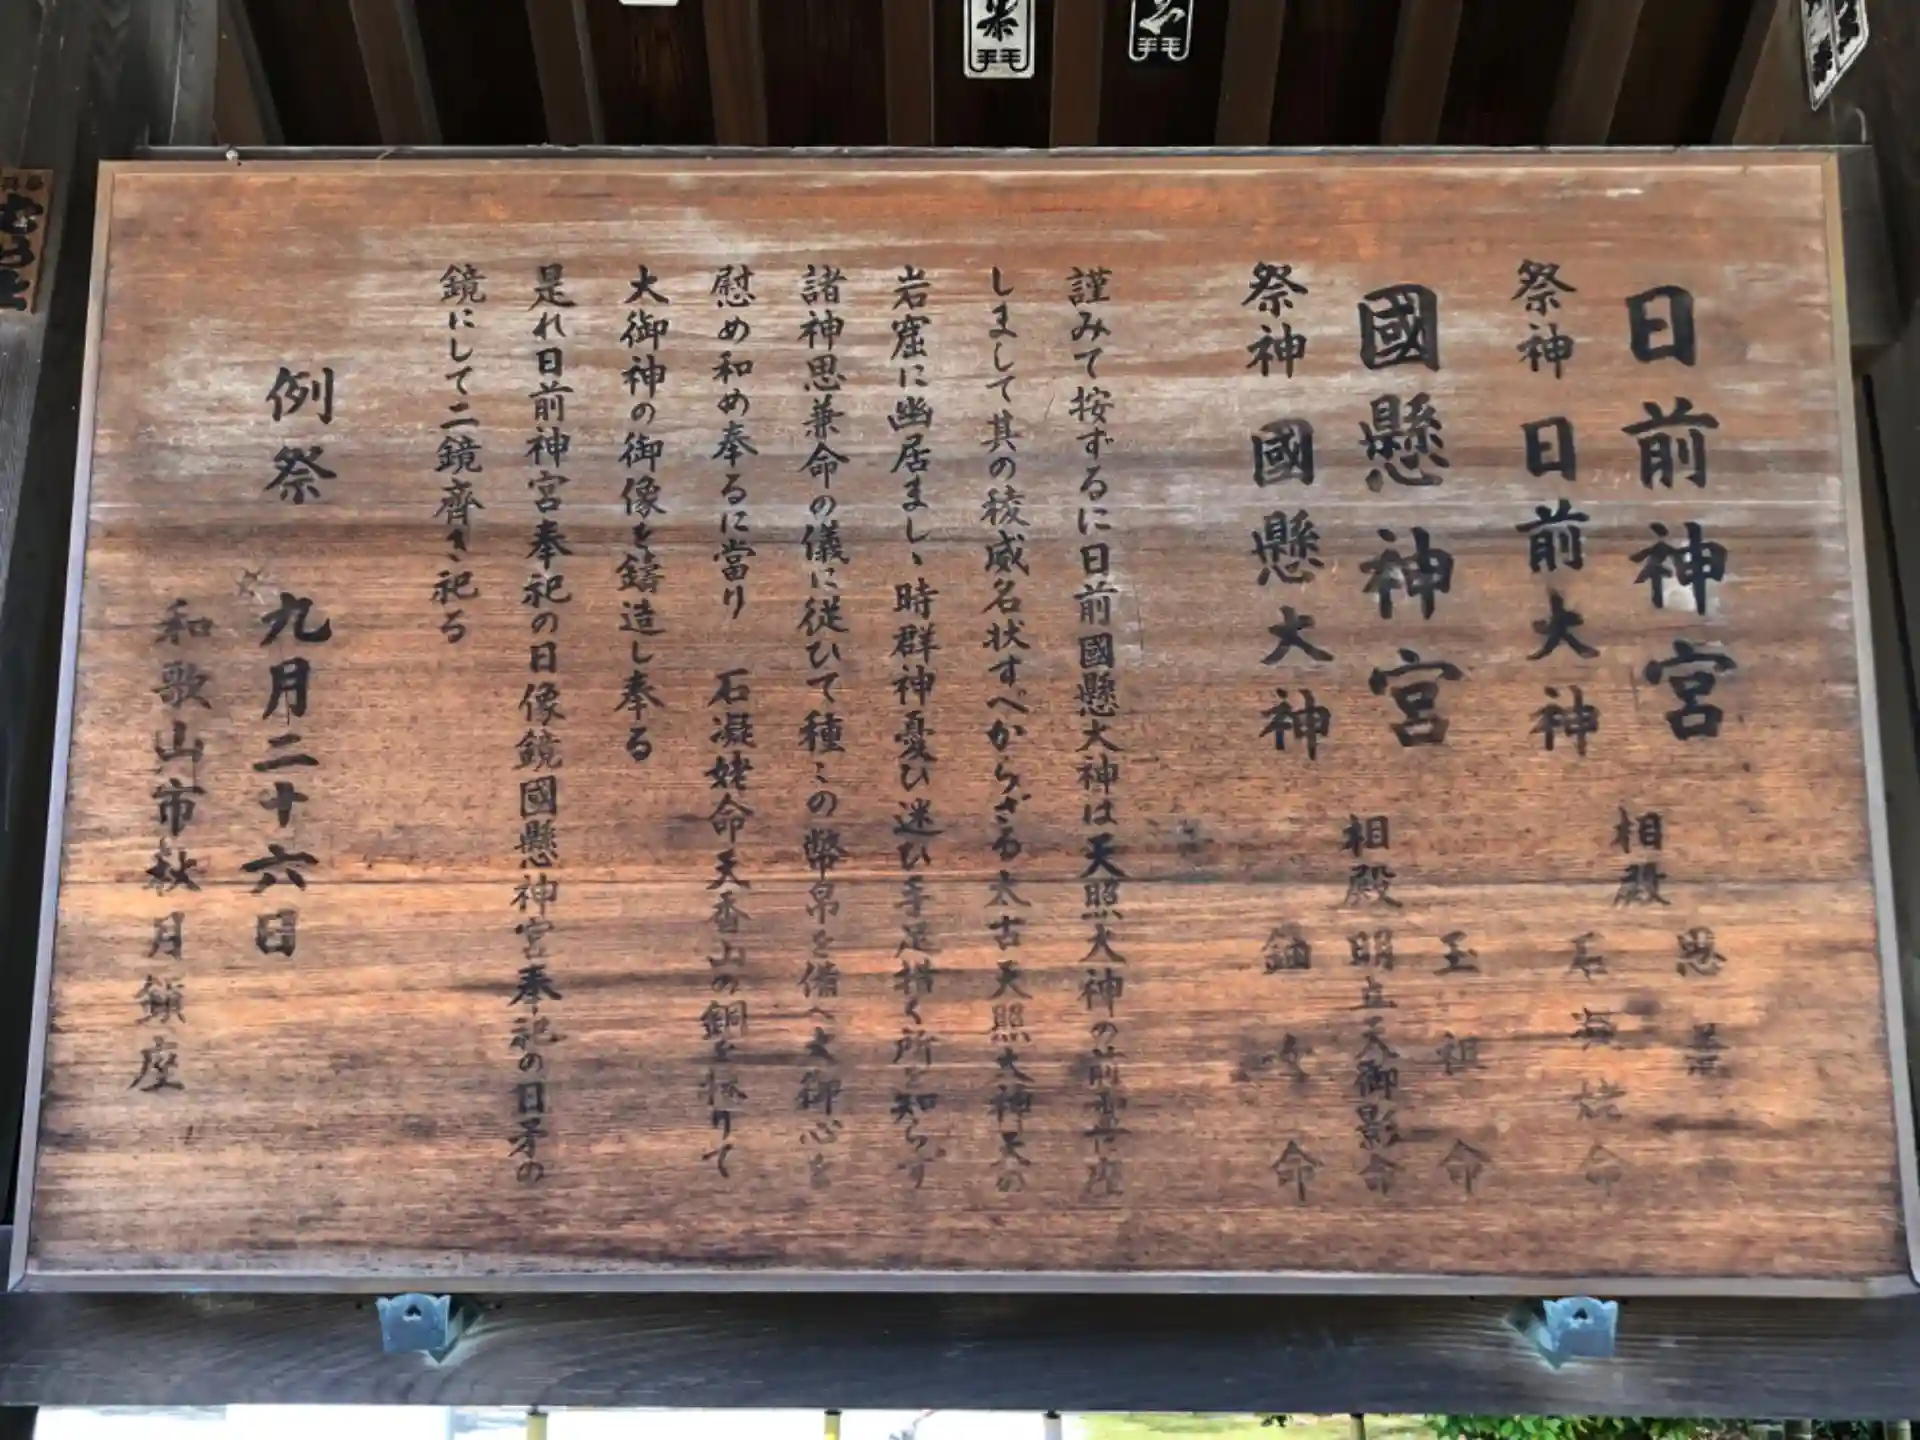 日前神宮
祭神 日前大神
相殿
思
石凝姥命
國懸神宮
祭神 國懸大神
相殿
玉祖命
明立天御影命
鈿女命
謹みて按ずるに日前國懸大神は天照大神の前霊に座
しまして其の稜威名状すべからざる太古天照大神天の
岩窟に幽居ましゝ時群神憂ひ迷ひ手足措く所を知らず
諸神思兼命の儀に従ひて種〻の幣帛を備へ大御心を
慰め和め奉るに當り 石凝姥命天香山の銅を採りて
大御神の御像を鑄造し奉る
是れ日前神宮奉祀の日像鏡國懸神宮奉祀の日矛の
鏡にして二鏡齊き祀る
例祭 九月二十六日
和歌山市秋月鎮座
拝
拝